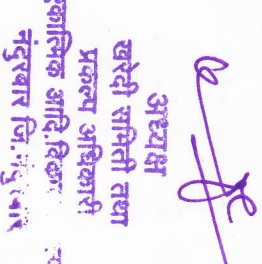 अध्यक्ष
खरेदी समिती तथा
प्रकल्प अधिकारी
एकात्मिक आदि.विका
नंदुरबार जि.